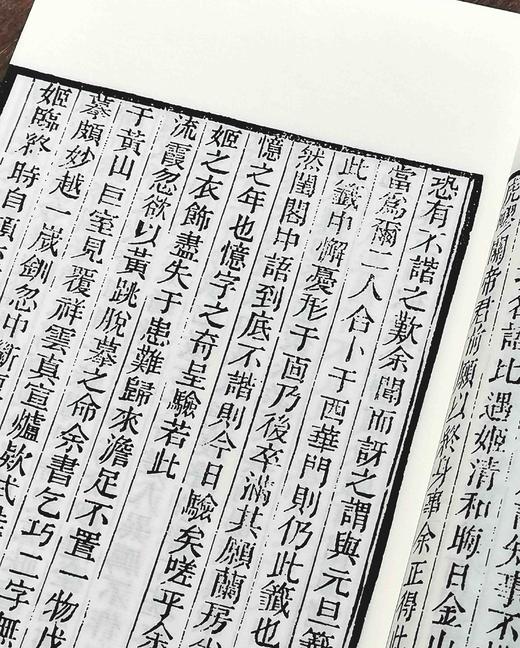 名語比遇姬清和晦日金山
關帝君前願以終身事余正得此
恐有不諧之歎余聞而訝之謂與元旦籤
當為爾二人合卜于西華門則仍此籤也
此籤中懈憂形于面乃後卒滿其願蘭房
然閨閣中語到底不諧則今日驗矣嗟乎余
憶之年也憶字之奇呈驗若此
姬之衣飾盡失于患難歸來澹足不置一物戊
流霞忽欲以黃跳脫摹之命余書乞巧二字無
于黃山巨室見覆祥雲真宣爐欵式
摹頗妙越一歲釧忽中斷
姬臨終時自頂